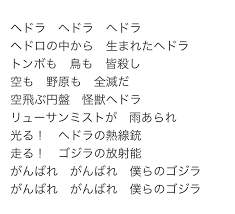 ヘドラ　ヘドラ　ヘドラ
ヘドロの中から　生まれたヘドラ
トンボも　鳥も　皆殺し
空も　野原も　全滅だ
空飛ぶ円盤　怪獣ヘドラ
リューサンミストが　雨あられ
光る！　ヘドラの熱線銃
走る！　ゴジラの放射能
がんばれ　がんばれ　僕らのゴジラ
がんばれ　がんばれ　僕らのゴジラ